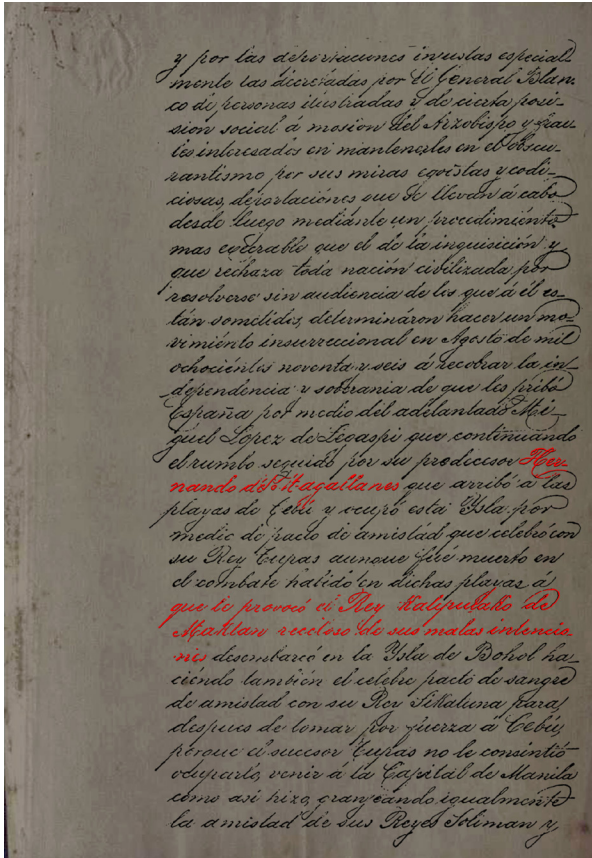 y por las deportaciones injustas especial-
mente las decretadas por el General Blan-
co de personas ilustradas y de cierta posi-
sion social á mosion del Arzobispo y frai-
les interesados en mantenerles en el obscu-
rantismo por sus miras egoistas y codi-
ciosas, deportaciónes que se llevan á cabo
desde luego mediante un procedimiénto
mas execrable que el de la inquisición y
que rechaza toda nación civilizada por
resolverse sin audiencia de los que á él es-
tán sometidos, determináron hacer un mo-
vimiénto insurreccional en Agosto de mil
ochociéntos noventa y seis á recobrar la in-
dependencia y soberania de que les pribó
España por medio del adelantado Mi-
guel López de Legaspi que continuando
el rumbo seguido por su predecesor Her-
nando de Magallanes que arribó á las
playas de Cebú y ocupó esta Ysla por
medio de pacto de amistad que celebró con
su Rey Tupas aunque fué muerto en
el combate habido en dichas playas á
que le provocó el Rey Kalipulako de
Maktan receloso de sus malas intencio-
nes desembarcó en la Ysla de Bohol ha-
ciéndo también el celebre pacto de sangre
de amistad con su Rey Sikatuna para
despues de tomar por fuerza á Cebú,
porque el sucesor Tupas no le consintió
ocuparlo, venir á la Capital de Manila
como asi hizo, granjeando igualmente
la amistad de sus Reyes Soliman y